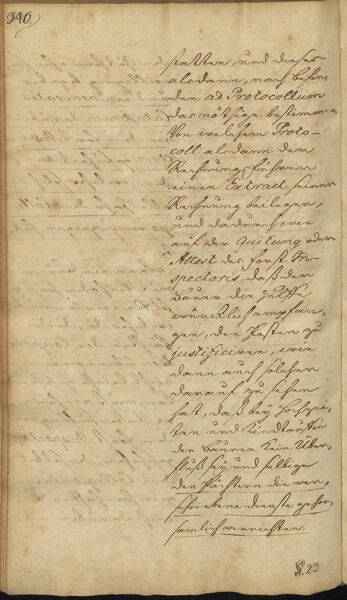 346.
statten, und dieses
alsdann, nach befin-
den ad Protocollum
das nöthige bestimme.
Von welchem Proto-
coll alsdann der
Rechnungs-führer
einen Extract seiner
Rechnung beilegen,
und dadurch wie
auf der Quitung oder
Attest des forst-In-
spectoris, daß der
Bauer die Hülffe
würcklich empfan-
gen, den Posten zu
justificiren, wie
dann auch solcher
darauf zu sehen
hat, daß bey Hochzei-
ten und Kindtaufen
der Bauren kein Über-
fluß sey, und selbige
den Pächtern die vor-
schriebene Dienste gehor-
samlich verrichten.
§. 23